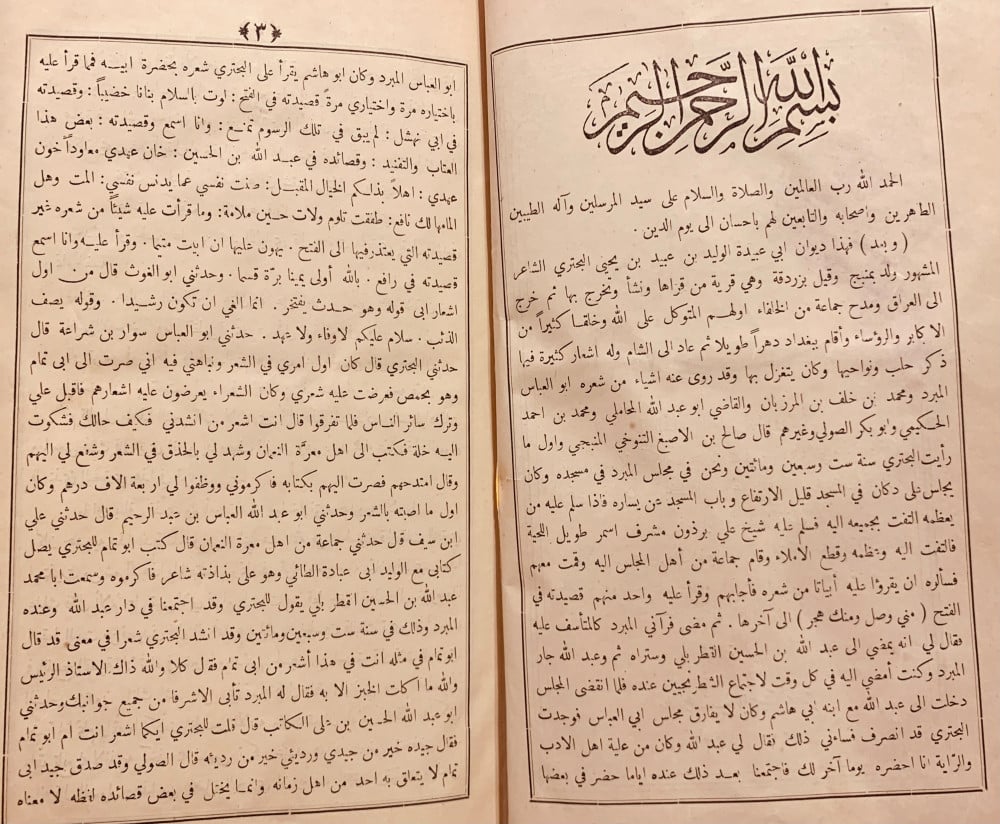 بسم الله الرحمن الرحيم
الحمد الله رب العالمين والصلاة والسلام على سيد المرسلين وآله الطيبين
الطاهرين واصحابه والتابعين لهم باحسان الى يوم الدين .
( وبعد ) فهذا ديوان ابي عبيدة الوليد بن عبيد بن يحيى البحتري الشاعر
المشهور ولد بمنبج وقيل بزردقة وهي قرية من قراها ونشأ وتخرج بها ثم خرج
الى العراق ومدح جماعة من الخلفاء اولهم المتوكل على الله وخلقا كثيراً من
الاكابر والرؤساء وأقام ببغداد دهراً طويلا ثم عاد الى الشام وله اشعار كثيرة فيها
ذكر حلب ونواحيها وكان يتغزل بها وقد روى عنه اشياء من شعره ابو العباس
المبرد ومحمد بن خلف بن المرزبان والقاضي ابو عبد الله المحاملي ومحمد بن احمد
الحكيمي وابو بكر الصولي وغيرهم قال صالح بن الاصبغ التنوخي المنبجي واول ما
رأيت البحتري سنة ست وسبعين ومائتين ونحن في مجلس المبرد في مسجده وكان
يجلس على دكان في المسجد قليل الارتفاع و باب المسجد عن يساره فاذا سلم عليه من
يعظمه التفت بجميعه اليه فسلم عليه شيخ علي برذون مشرف اسمر طويل اللحية
فالتفت اليه وعظمه وقطع الاملاء وقام جماعة من أهل المجلس اليه وقمت معهم
فسألوه ان يقرؤا عليه أبياتا من شعره فأجابهم وقرأ عليه واحد منهم قصيدته في
الفتح ( مني وصل ومنك هجر ) الى آخرها . ثم مضى فرآني المبرد كالمتأسف عليه
فقال لي انه يمضي الى عبد الله بن الحسين القطربلي وستراه ثم وعبد الله جار
المبرد وكنت أمضي اليه في كل وقت لاجتماع الشطرنجيين عنده فلما انقضى المجلس
دخلت الى عبد الله مع ابنه ابي هاشم وكان لا يفارق مجلس ابي العباس فوجدت
البحتري قد انصرف فساءني ذلك فقال لي عبد الله وكان من علية اهل الادب
والرئاية انا احضره يوما آخر لك فاجتمعنا بعد ذلك عنده اياما حضر في بعضها
﴿ ٣ ﴾
ابو العباس المبرد وكان ابو هاشم يقرأ على البحتري شعره بحضرة ابيه فمما قرأ عليه
باختياره مرة واختياري مرةً قصيدته في الفتح : اوت بالسلام بنانا خضيباً : وقصيدته
في ابي نهشل : لم يبق في تلك الرسوم تمنع : وانا اسمع وقصيدته : بعض هذا
العتاب والتفنيد : وقصائده في عبد الله بن الحسين : خان عهدي معاوداً خون
عهدي : اهلاً بذلكم الخيال المقبل : صنت نفسي عما يدنس نفسي : المت وهل
المامها لك نافع : طفقت تلوم ولات حين ملامة : وما قرأت عليه شيئاً من شعره غير
قصيدته التي يعتذر فيها الى الفتح . يهون عليها ان ابيت متيما . وقرأ عليه وانا اسمع
قصيدته في رافع . بالله أولى يمينا برّة قسما . وحدثني ابو الغوث قال من اول
اشعار ابى قوله وهو حدث يفتخر . انما الغي ان تكون رشيدا . وقوله يصف
الذئب . سلام عليكم لا وفاء ولا عهد . حدثني ابو العباس سوار بن شراعة قال
حدثني البحتري قال كان اول امري في الشعر ونباهتي فيه اني صرت الى ابى تمام
وهو بحمص فعرضت عليه شعري وكان الشعراء يعرضون عليه اشعارهم فاقبل علي
وترك سائر الناس فلما تفرقوا قال انت اشعر من انشدني فكيف حالك فشكوت
اليه خلة فكتب الى اهل معرّة النعمان وشهد لي بالحذق في الشعر وشفع لي اليهم
وقال امتدحهم فصرت اليهم بكتابه فاكرموني ووظفوا لي اربعة الاف درهم وكان
اول ما اصبته بالشعر وحدثني ابو عبد الله العباس بن عبد الرحيم قال حدثني علي
ابن سيف قال حدثني جماعة من اهل معرة النعمان قال كتب ابو تمام للبحتري يصل
كتابي مع الوليد ابى عبادة الطائي وهو على بذاذته شاعر فاكرموه وسمعت ابا محمد
عبد الله بن الحسين القطربلي يقول للبحتري وقد اجتمعنا في دار عبد الله وعنده
المبرد وذلك في سنة ست وسبعين ومائتين وقد انشد البحتري شعرا في معنى قد قال
ابو تمام في مثله انت في هذا أشعر من ابى تمام فقال كلا والله ذاك الاستاذ الرئيس
والله ما اكلت الخبز الا به فقال له المبرد تأبى الا شرفا من جميع جوانبك وحدثني
ابو عبد الله الحسين بن على الكاتب قال قلت للبحتري ايكما اشعر انت ام ابو تمام
فقال جيده خير من جيدي ورديئي خير من رديئه قال الصولي وقد صدق جيد ابى
تمام لا يتعلق به احد من اهل زمانه وانما يختل في بعض قصائده لفظه لا معناه